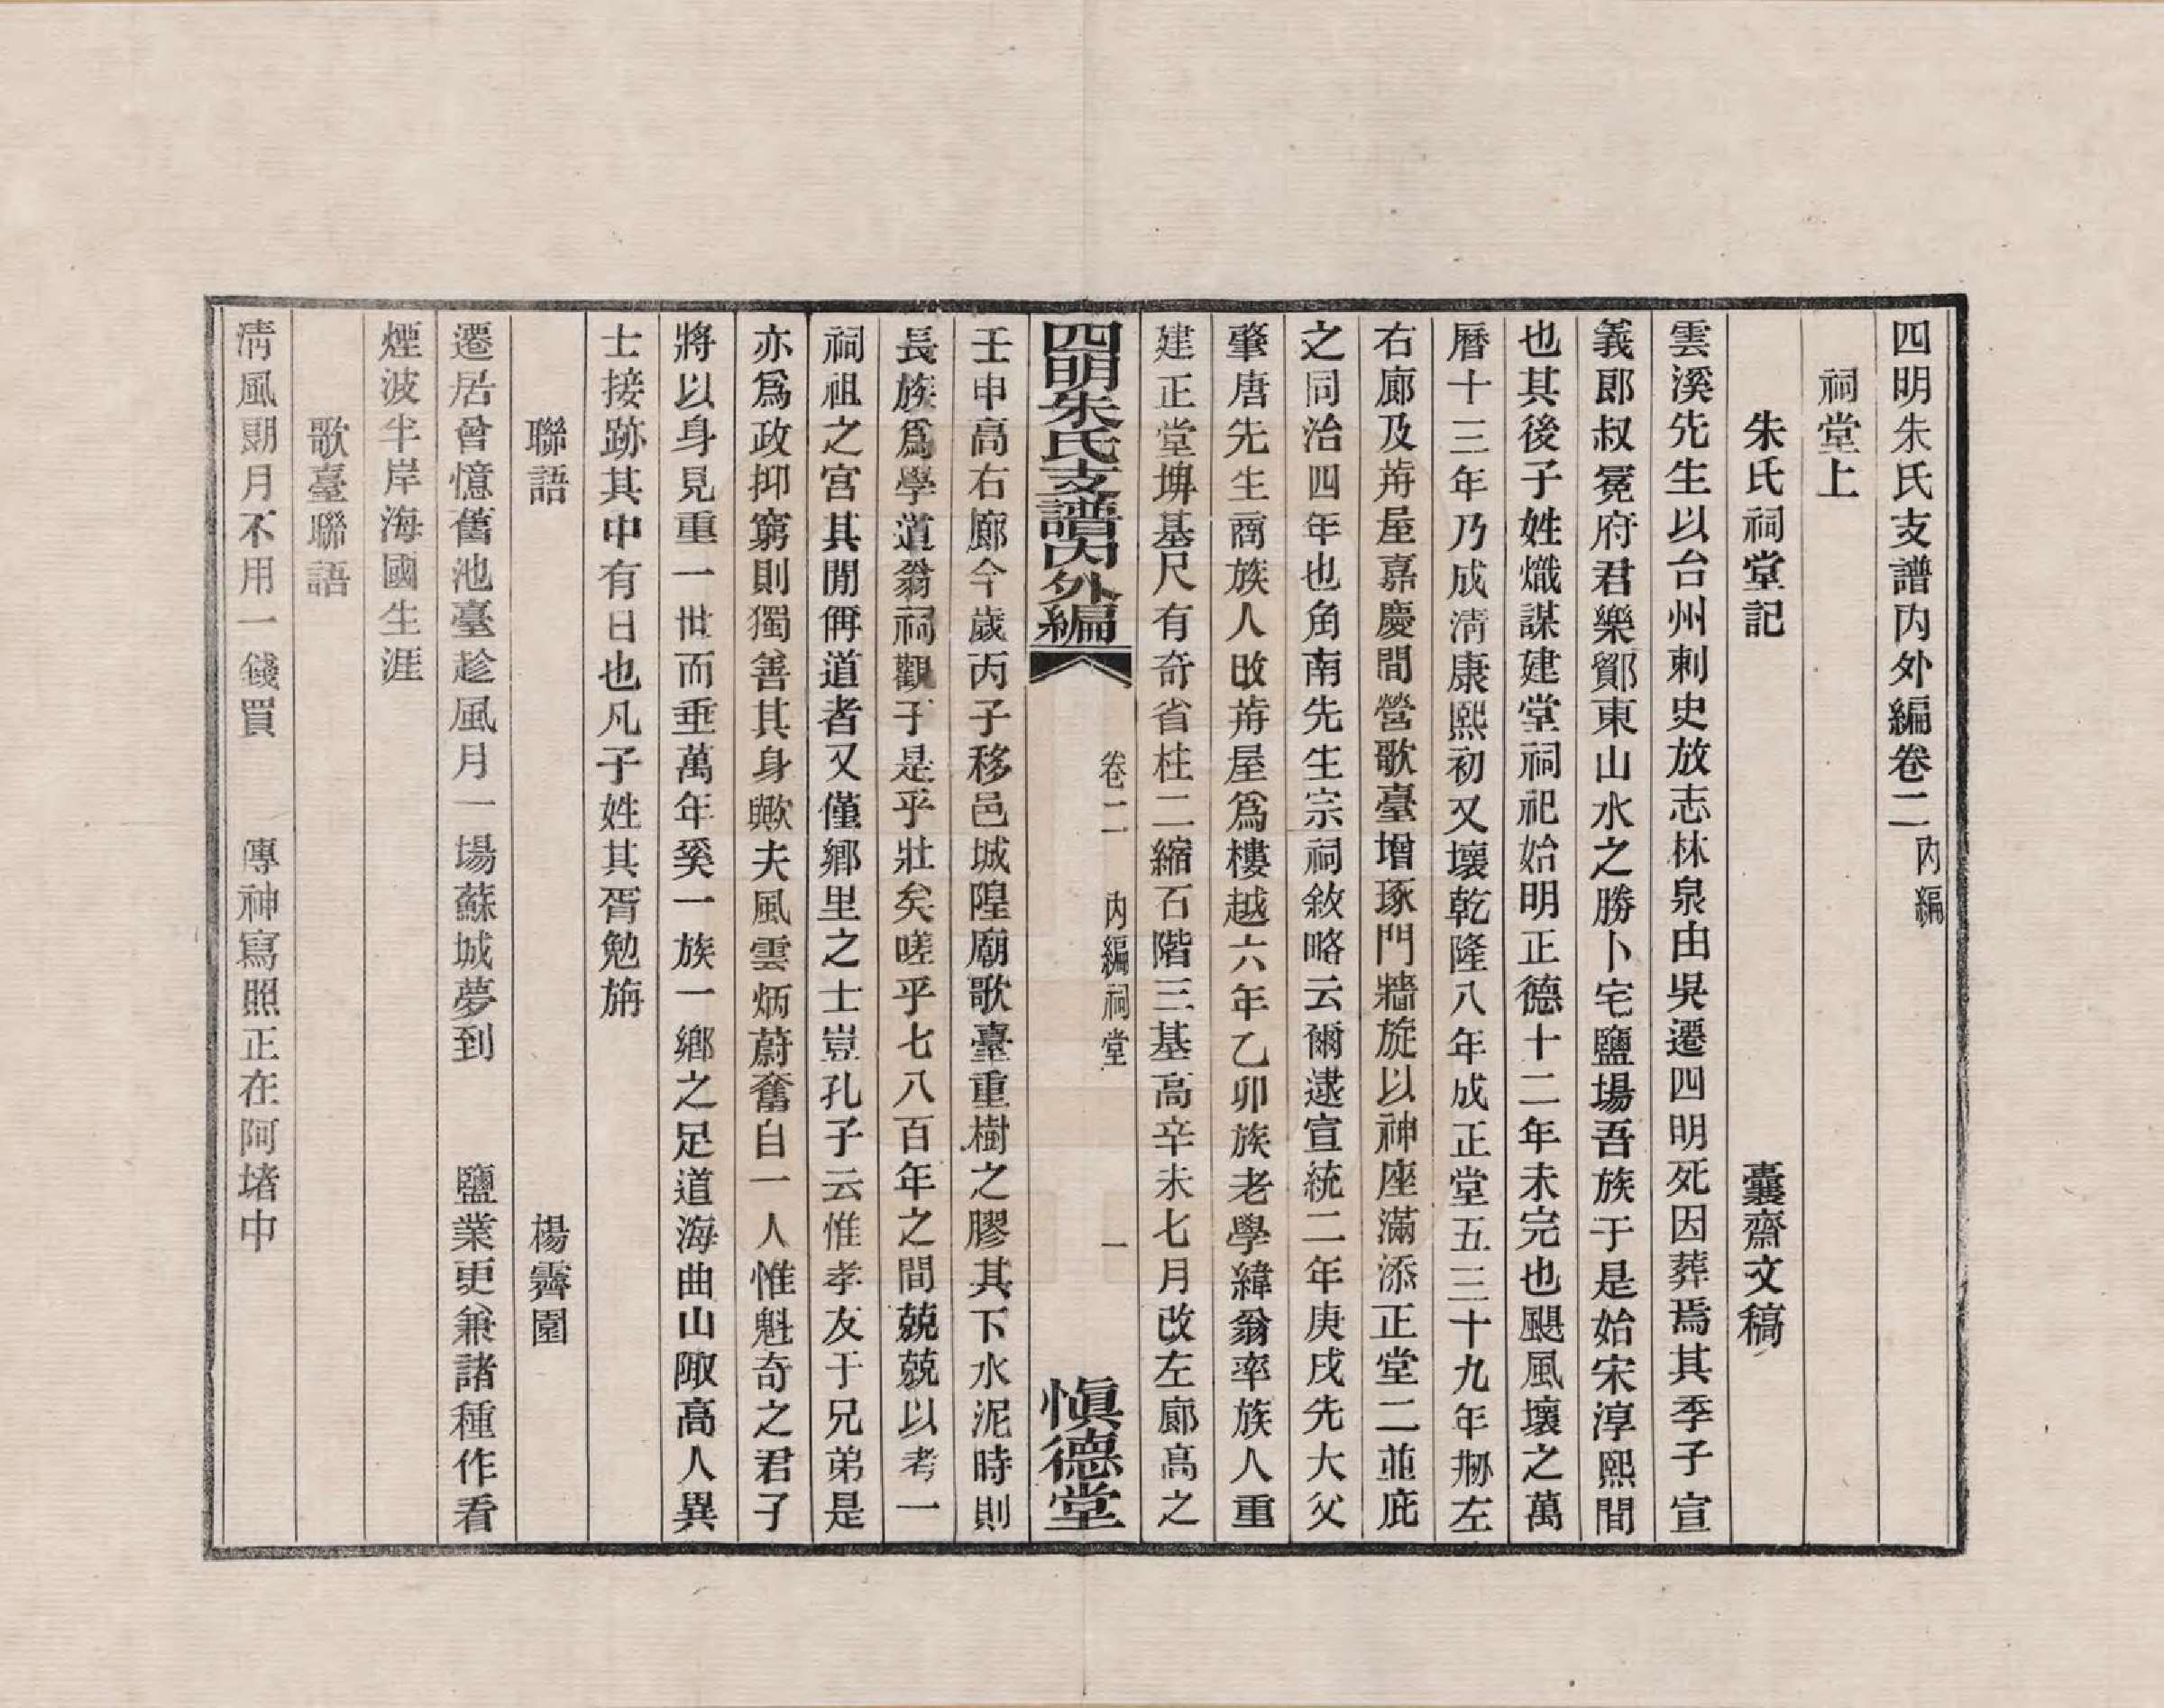 四明朱氏支譜內外編卷二 內編
祠堂上
朱氏祠堂記 囊齋文稿
雲溪先生以台州刺史放志林泉由吳遷四明死因葬焉其季子宣
義郎叔冕府君樂鄮東山水之勝卜宅鹽場吾族于是始宋淳熙間
也其後子姓熾謀建堂祠祀始明正德十二年未完也颶風壞之萬
曆十三年乃成清康熙初又壞乾隆八年成正堂五三十九年刱左
右廊及歬屋嘉慶間營歌臺增琢門牆旋以神座滿添正堂二並庇
之同治四年也角南先生宗祠敘略云爾逮宣統二年庚戌先大父
肇唐先生商族人改歬屋爲樓越六年乙卯族老學緯翁率族人重
建正堂埤基尺有奇省柱二縮石階三基高辛未七月改左廊高之
四明朱氏支譜內外編 卷二 內編祠堂 一 愼德堂
壬申高右廊今歲丙子移邑城隍廟歌臺重樹之膠其下水泥時則
長族爲學道翁祠觀于是乎壯矣嗟乎七八百年之間兢兢以考一
祠祖之宮其閒侢道者又僅鄉里之士豈孔子云惟孝友于兄弟是
亦爲政抑窮則獨善其身歟夫風雲炳蔚奮自一人惟魁奇之君子
將以身見重一世而垂萬年奚一族一鄉之足道海曲山陬高人異
士接跡其中有日也凡子姓其胥勉旃
聯語 楊霽園
遷居曾憶舊池臺趁風月一場蘇城夢到 鹽業更兼諸種作看
煙波半岸海國生涯
歌臺聯語
淸風朙月不用一錢買 傳神寫照正在阿堵中